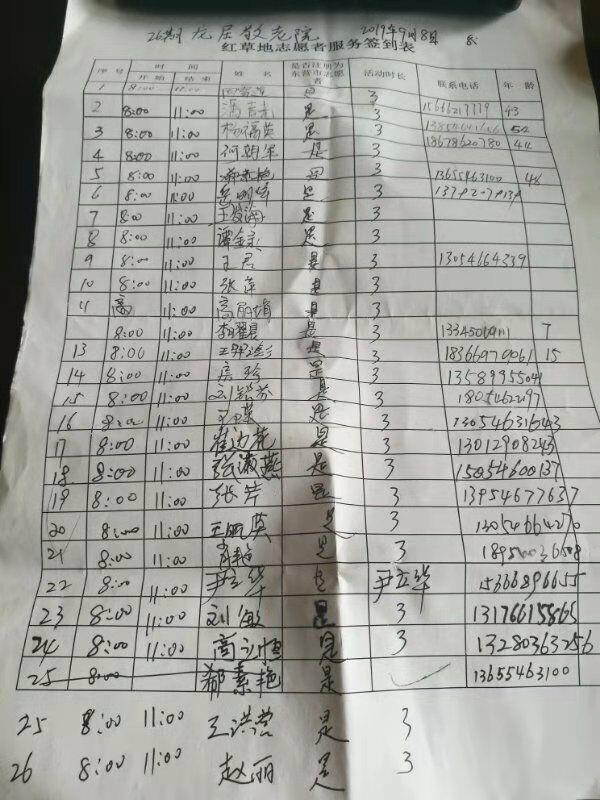 26期 龙居敬老院 2019年9月8日
红草地志愿者服务签到表
序号 时间 开始 结束 姓名 是否注册为东营市志愿者 活动时长 联系电话 年龄
1 8:00 11:00 是 3
2 8:00 11:00 是 3 15666217779 43
3 8:00 11:00 杨福英 是 3 54
4 8:00 11:00 何朝军 是 3 18678620780 44
5 8:00 11:00 郝素艳 是 3 13655463100 48
6 8:00 11:00 是 3
7 8:00 11:00 是 3
8 8:00 11:00 是 3
9 8:00 11:00 王君 是 3 13054664339
10 8:00 11:00 张萍 是 3
11 高 11:00 高丽娟 是 3
8:00 11:00 李曜晨 是 3 7
13 8:00 11:00 是 3 18366970961 15
14 8:00 11:00 房珍 是 3 13589955041
15 8:00 11:00 是 3
16 8:00 11:00 是 3 13054631643
17 8:00 11:00 是 3 13012908243
18 8:00 11:00 张淑燕 是 3 15054600137
19 8:00 11:00 张芹 是 3 13954677637
20 8:00 11:00 是 3 13054664270
21 8:00 11:00 肖艳 是 3
22 8:00 11:00 尹立华 是 尹立华 15366896655
23 8:00 11:00 刘敏 是 3 13176615865
24 8:00 11:00 商立恒 是 3 13280363256
25 8:00 郝素艳 是 ✓ 13655463100
25 8:00 11:00 王洪营 是 3
26 8:00 11:00 赵丽 是 3